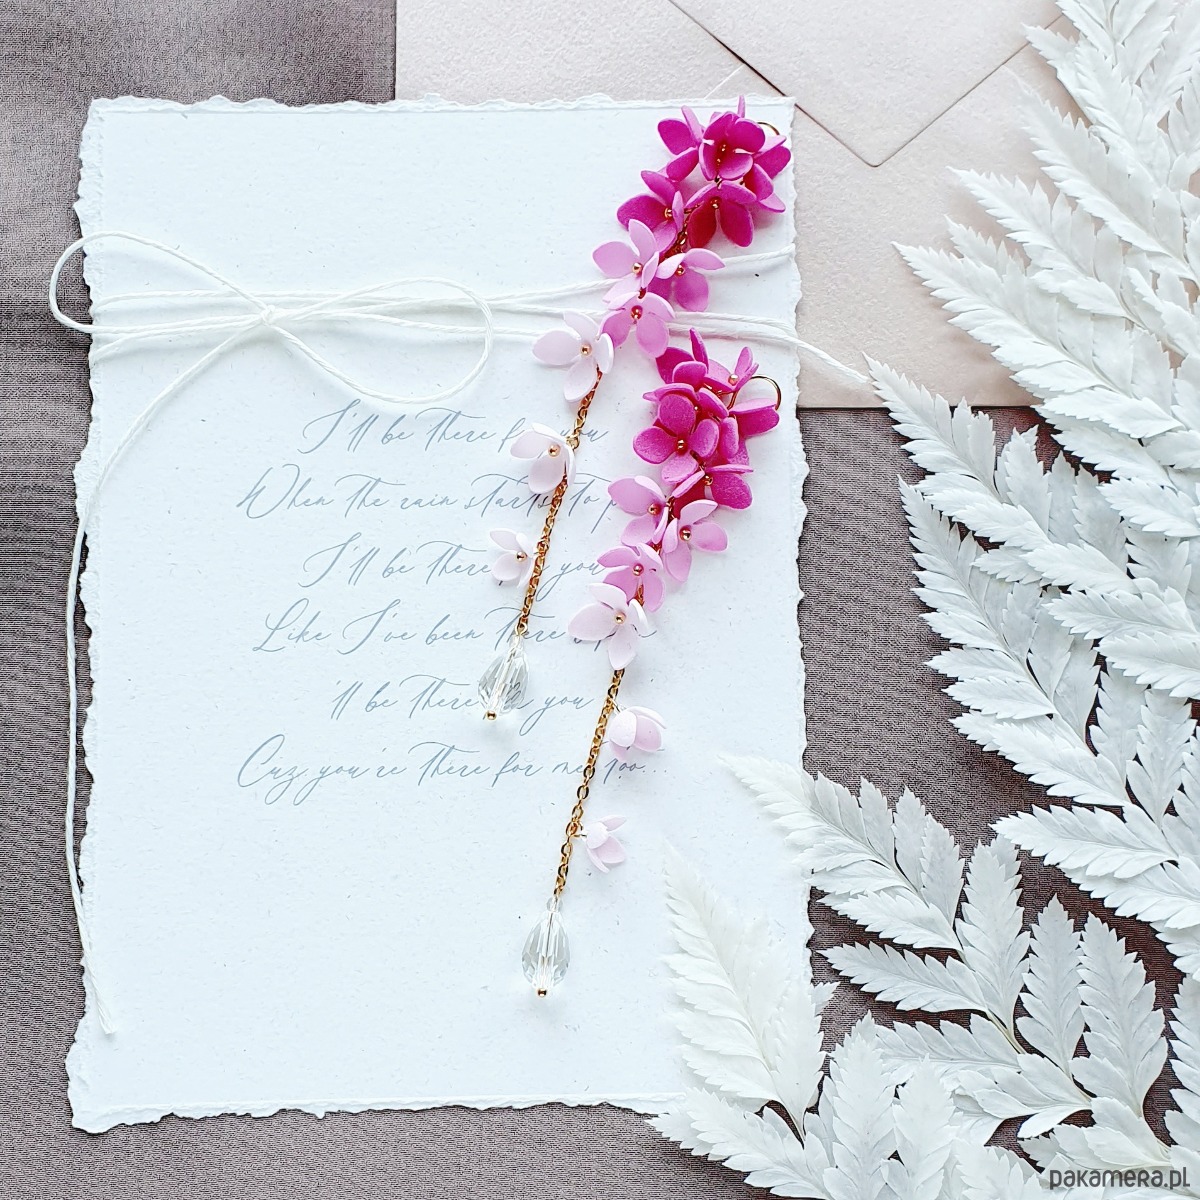 I'll be there for you
When the rain starts to p
I'll be there you
Like I've been there
'll be there you
Cuz you're there for me too...
pakamera.pl